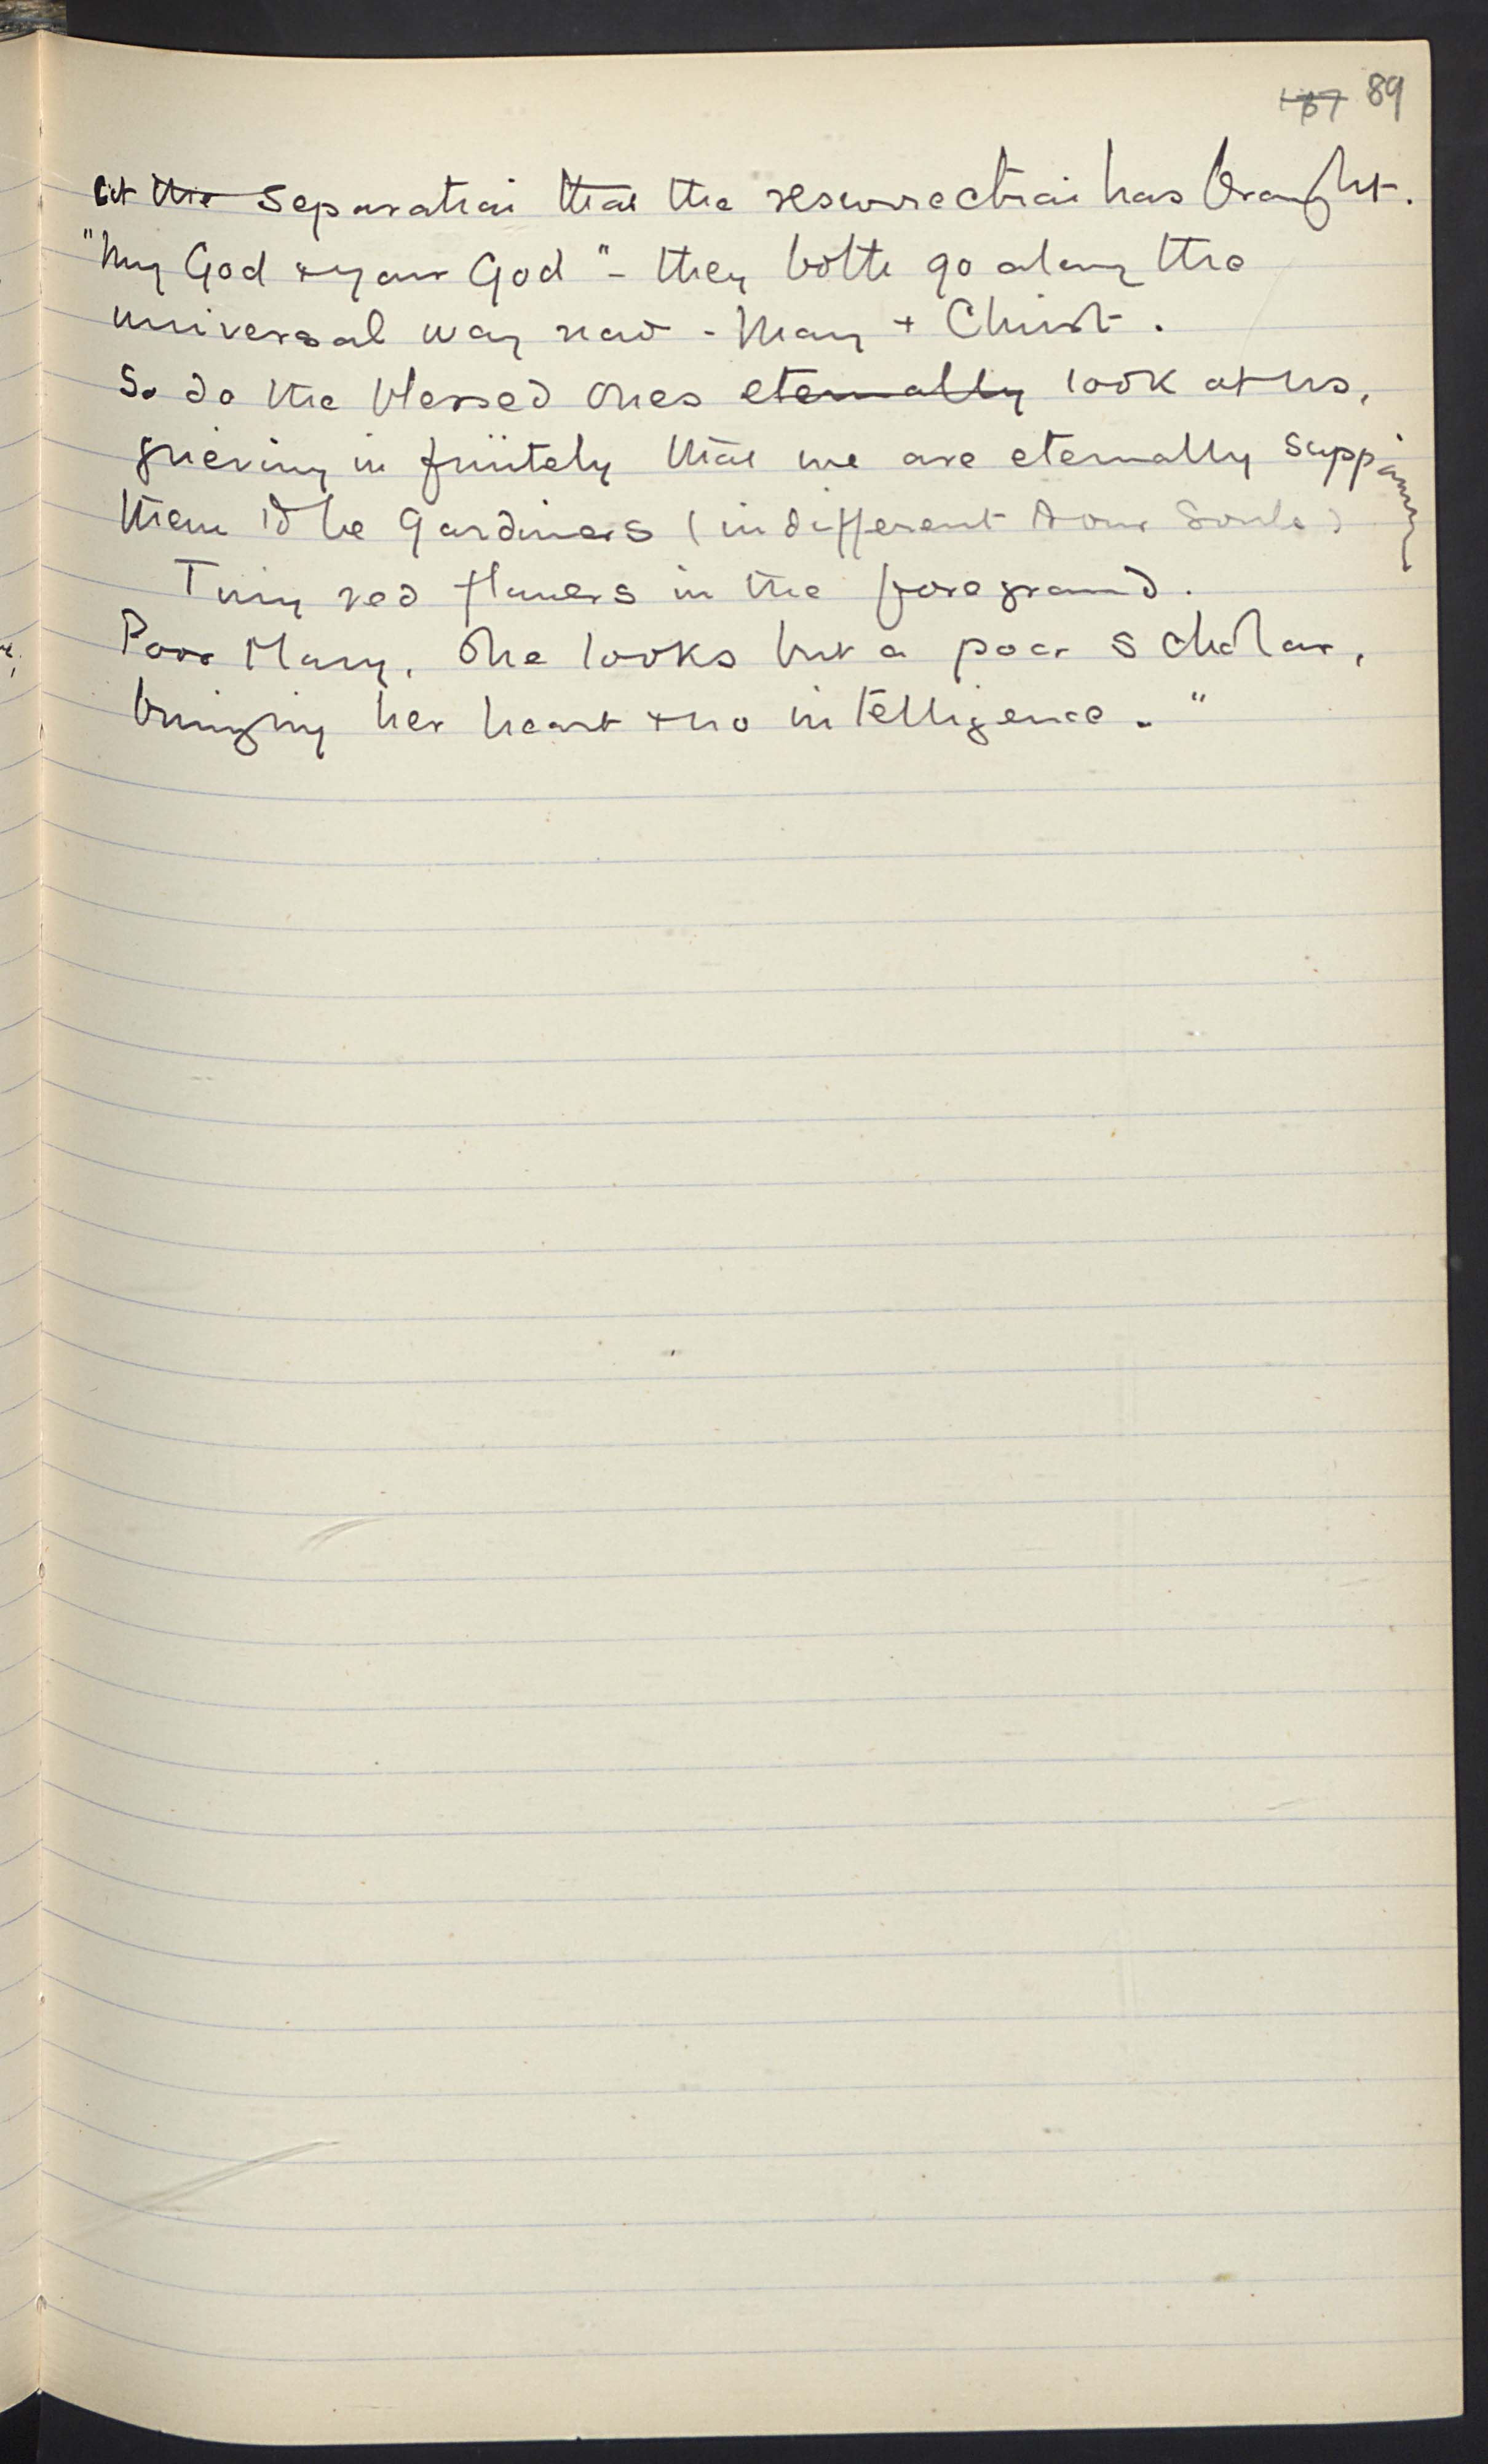 187 89
at the separation that the resurrection has brought.
"My God & your God" - they both go along the
universal way now - Mary + Christ.
So do the blessed ones eternally look at us,
grieving infinitely that we are eternally supposing
them to be gardiners (indifferent to our souls)
Tiny red flowers in the foreground.
Poor Mary, she looks but a poor scholar,
bringing her heart & no intelligence."